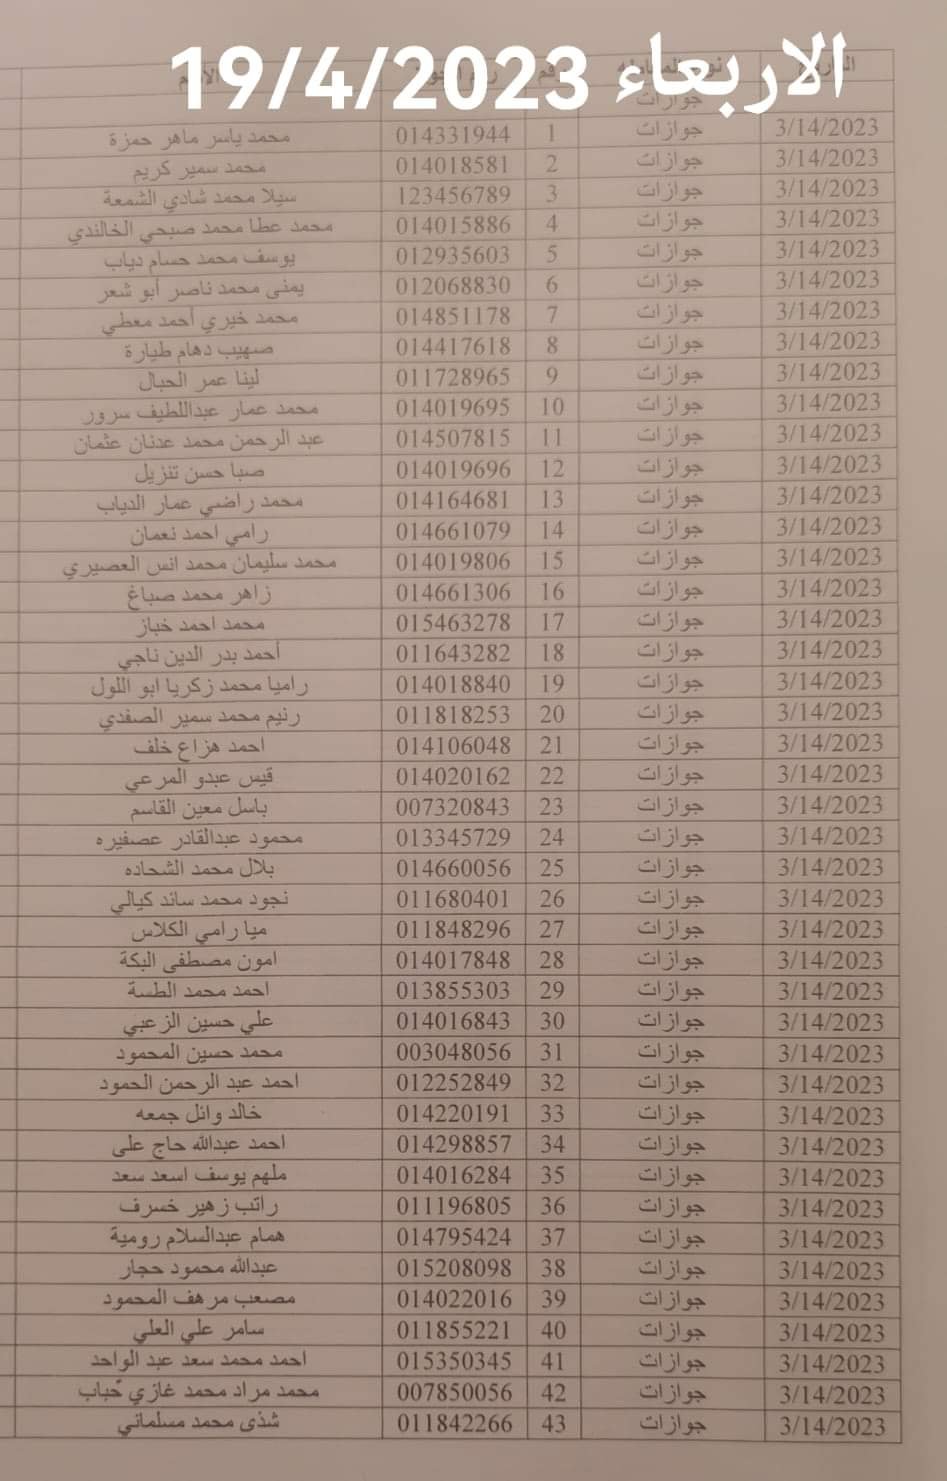 الاربعاء 19/4/2023
جوازات
3/14/2023 جوازات 1 014331944 محمد ياسر ماهر حمزة
3/14/2023 جوازات 2 014018581 محمد سمير كريم
3/14/2023 جوازات 3 123456789 سيلا محمد شادي الشمعة
3/14/2023 جوازات 4 014015886 محمد عطا محمد صبحي الخالندي
3/14/2023 جوازات 5 012935603 يوسف محمد حسام دياب
3/14/2023 جوازات 6 012068830 يمنى محمد ناصر أبو شعر
3/14/2023 جوازات 7 014851178 محمد خيري أحمد معطي
3/14/2023 جوازات 8 014417618 صهيب دهام طيارة
3/14/2023 جوازات 9 011728965 لينا عمر الحبال
3/14/2023 جوازات 10 014019695 محمد عمار عبداللطيف سرور
3/14/2023 جوازات 11 014507815 عبد الرحمن محمد عدنان عثمان
3/14/2023 جوازات 12 014019696 صبا حسن تنزيل
3/14/2023 جوازات 13 014164681 محمد راضي عمار الدياب
3/14/2023 جوازات 14 014661079 رامي احمد نعمان
3/14/2023 جوازات 15 014019806 محمد سليمان محمد انس العصيري
3/14/2023 جوازات 16 014661306 زاهر محمد صباغ
3/14/2023 جوازات 17 015463278 محمد احمد خباز
3/14/2023 جوازات 18 011643282 أحمد بدر الدين ناجي
3/14/2023 جوازات 19 014018840 راميا محمد زكريا ابو اللول
3/14/2023 جوازات 20 011818253 رنيم محمد سمير الصفدي
3/14/2023 جوازات 21 014106048 احمد هزاع خلف
3/14/2023 جوازات 22 014020162 قيس عبدو المرعي
3/14/2023 جوازات 23 007320843 باسل معين القاسم
3/14/2023 جوازات 24 013345729 محمود عبدالقادر عصفيره
3/14/2023 جوازات 25 014660056 بلال محمد الشحاده
3/14/2023 جوازات 26 011680401 نجود محمد سائد كيالي
3/14/2023 جوازات 27 011848296 ميا رامي الكلاس
3/14/2023 جوازات 28 014017848 امون مصطفى البكة
3/14/2023 جوازات 29 013855303 احمد محمد الطسة
3/14/2023 جوازات 30 014016843 علي حسين الزعبي
3/14/2023 جوازات 31 003048056 محمد حسين المحمود
3/14/2023 جوازات 32 012252849 احمد عبد الرحمن الحمود
3/14/2023 جوازات 33 014220191 خالد وائل جمعه
3/14/2023 جوازات 34 014298857 احمد عبدالله حاج على
3/14/2023 جوازات 35 014016284 ملهم يوسف اسعد سعد
3/14/2023 جوازات 36 011196805 راتب زهير خسرف
3/14/2023 جوازات 37 014795424 همام عبدالسلام رومية
3/14/2023 جوازات 38 015208098 عبدالله محمود حجار
3/14/2023 جوازات 39 014022016 مصعب مرهف المحمود
3/14/2023 جوازات 40 011855221 سامر علي العلي
3/14/2023 جوازات 41 015350345 احمد محمد سعد عبد الواحد
3/14/2023 جوازات 42 007850056 محمد مراد محمد غازي خباب
3/14/2023 جوازات 43 011842266 شذى محمد مسلماني